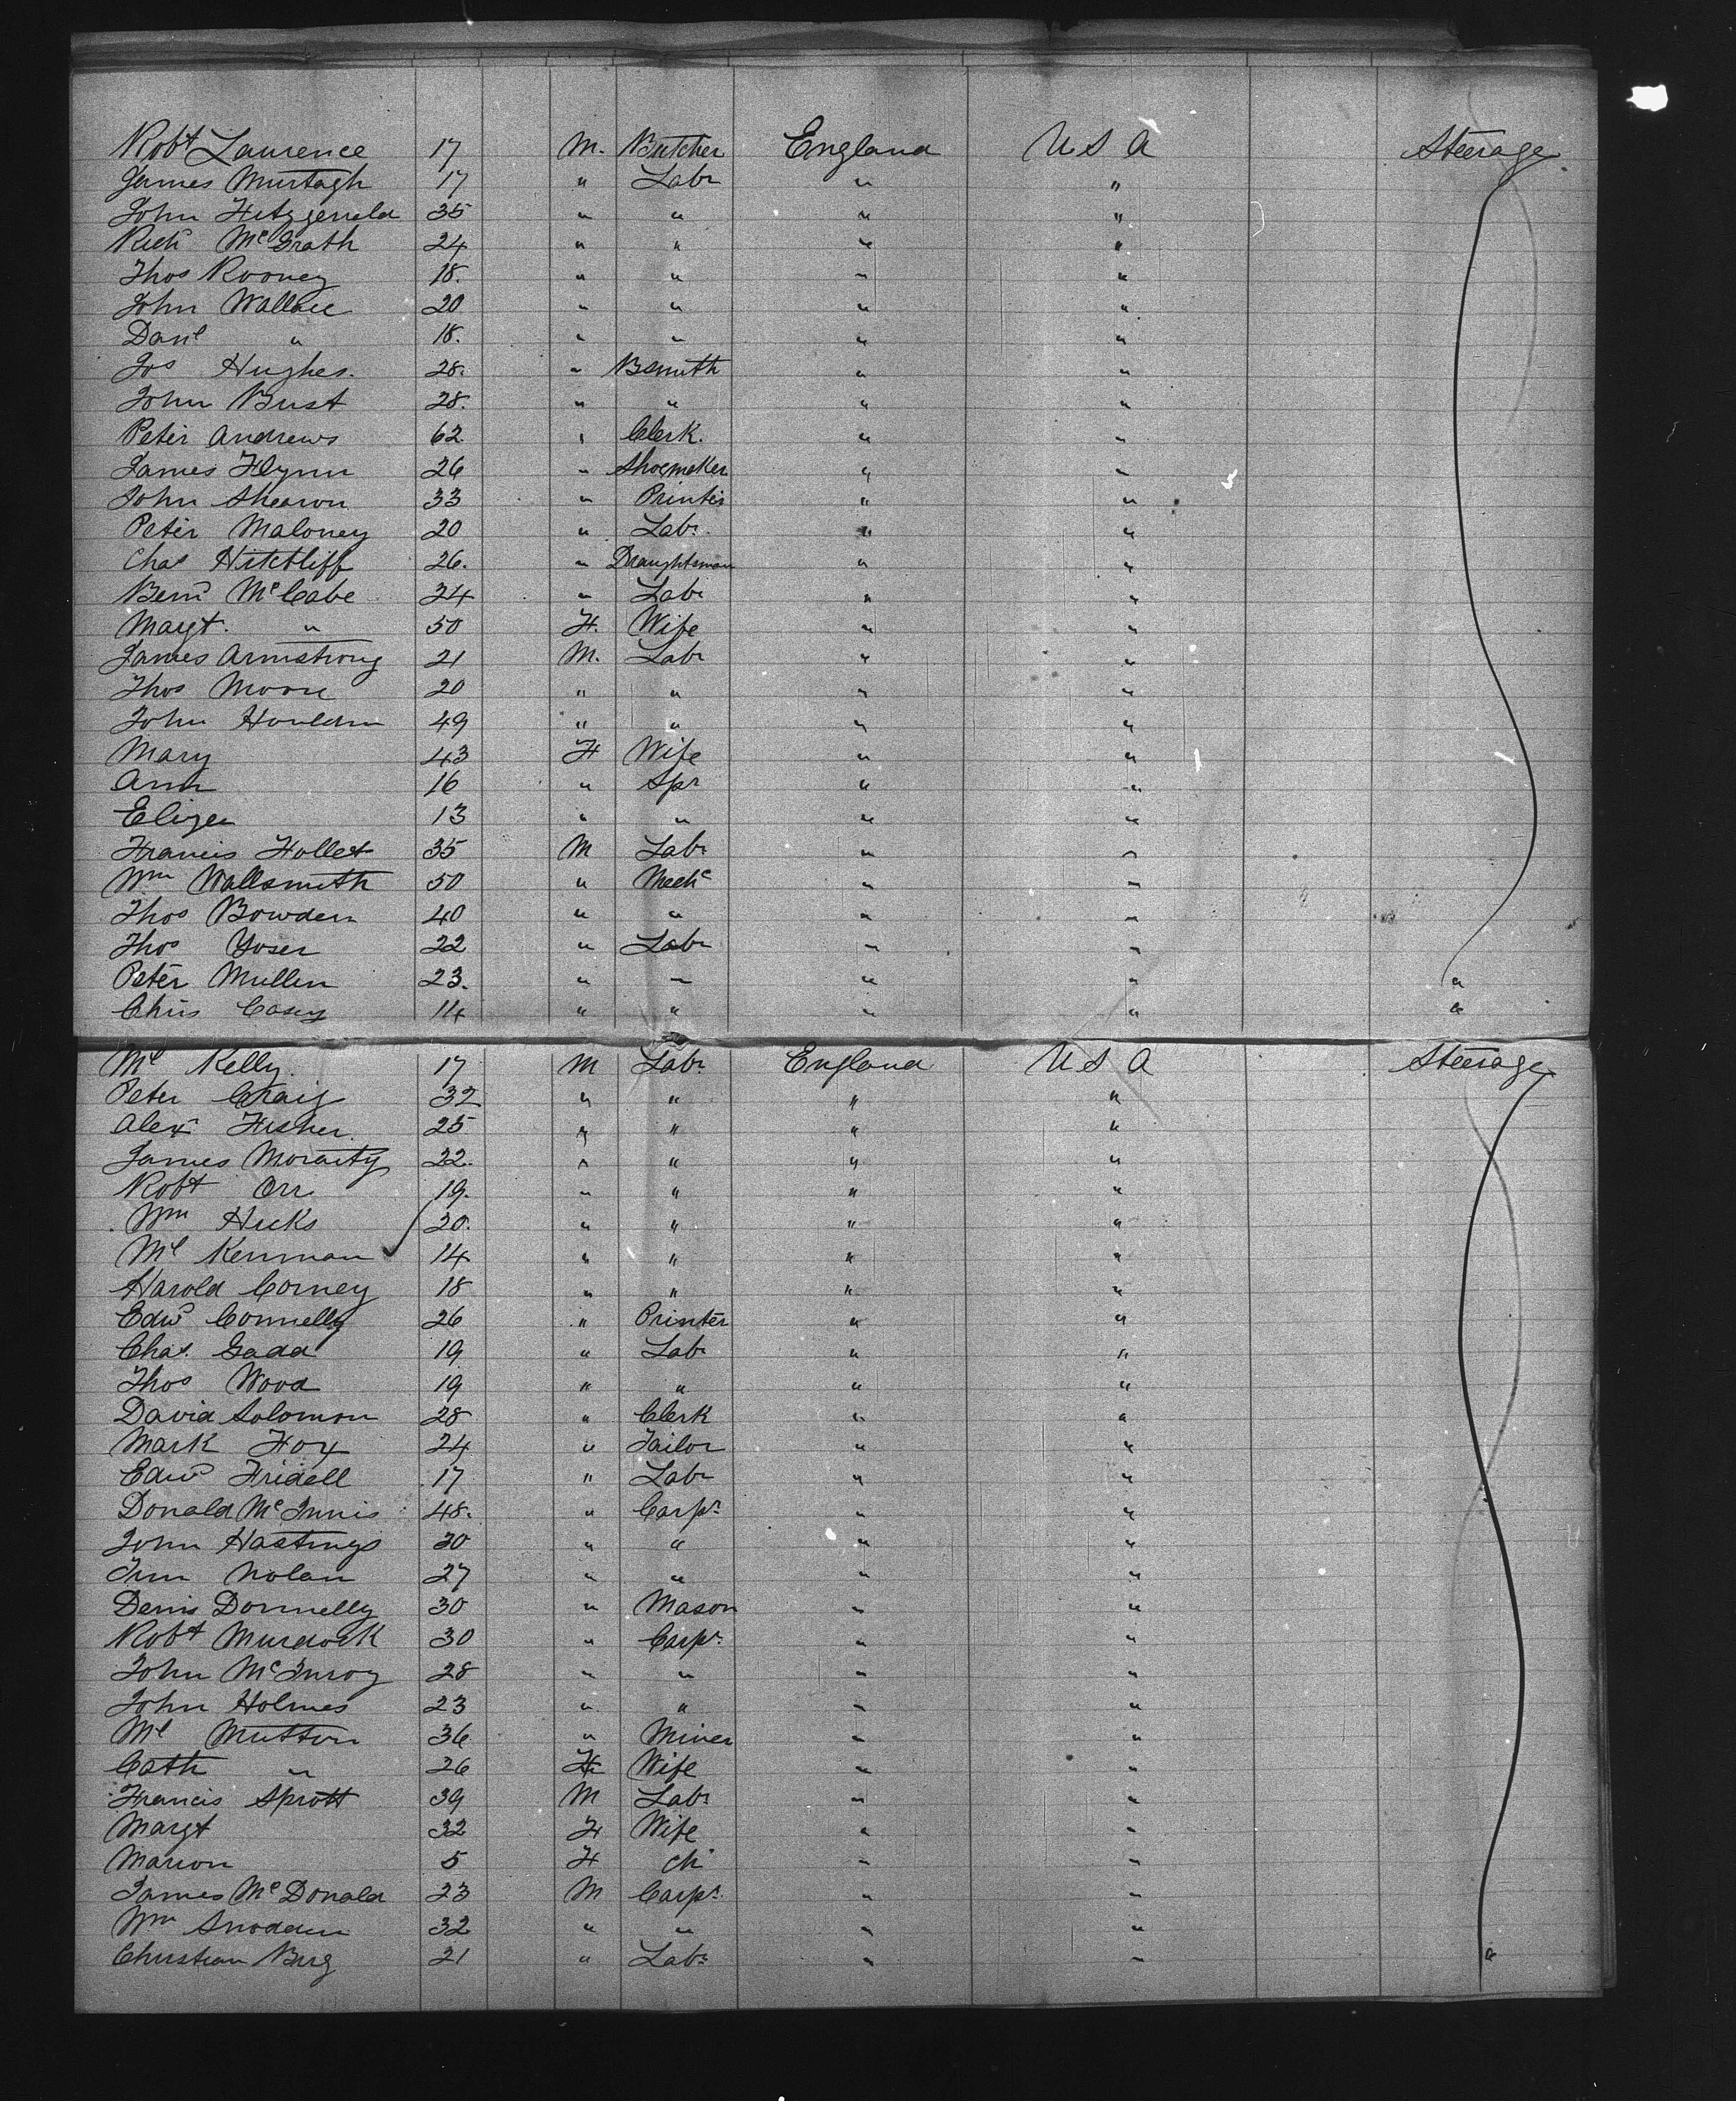 Robt Laurence 17 M. Butcher England U S A Steerage
James Murtagh 17 " Labr " "
John Fitzgerald 35 " " " "
Richd McGrath 24 " " " "
Thos Rooney 18. " " " "
John Wallace 20 " " " "
Danl " 18. " " " "
Jos Hughes. 28. " BSmith " "
John Bust 28. " " " "
Peter Andrews 62 " Clerk. " "
James Flynn 26 " Shoemaker " "
John Shearon 33 " Printer " "
Peter Maloney 20 " Labr. " "
Chas Hitchliff 26. " Draughtsman " "
Bernd McCabe 34 " Labr " "
Margt. " 50 F. Wife " "
James Armstrong 21 M. Labr " "
Thos Moore 20 " " " "
John Houlden 49 " " " "
Mary 43 F Wife " "
Ann 16 " Spr " "
Eliza 13 " " " "
Francis Follet 35 M Labr " "
Wm Wallsmith 50 " Mechc " "
Thos Bowden 40 " " " "
Thos 22 " Labr " "
Peter Mullen 23. " " " " "
Chris Casey 14 " " " " "
Ml Kelly. 17 M Labr England U S A Steerage
Peter Craig 32 " " " "
Alexr Fisher 25 " " " "
James Morarity 22. " " " "
Robt Orr 19. " " " "
Wm Hicks 20. " " " "
Ml Kernnan ✓ 14 " " " "
Harold Corney 18 " " " "
Edwd Connelly 26 " Printer " "
Chas. Gadd 19 " Labr " "
Thos Wood 19 " " " "
David Solomon 28 " Clerk " "
Mark Fox 24 " Tailor " "
Edwd Fridell 17 " Labr " "
Donald McInnis 48. " Carpr " "
John Hastings 30 " " " "
Nolan 27 " " " "
Denis Donnelly 30 " Mason " "
Robt Murdock 30 " Carpr. " "
John McInroy 28 " " " "
John Holmes 23 " " " "
Ml Mutton 36 " Miner " "
Cath " 26 F Wife " "
Francis Sprott 39 M Labr " "
Margt 32 F Wife " "
Marion 5 F ch " "
James McDonald 23 M Carpr. " "
Wm Snodden 32 " " " "
Christian Berg 21 " Labr " " "